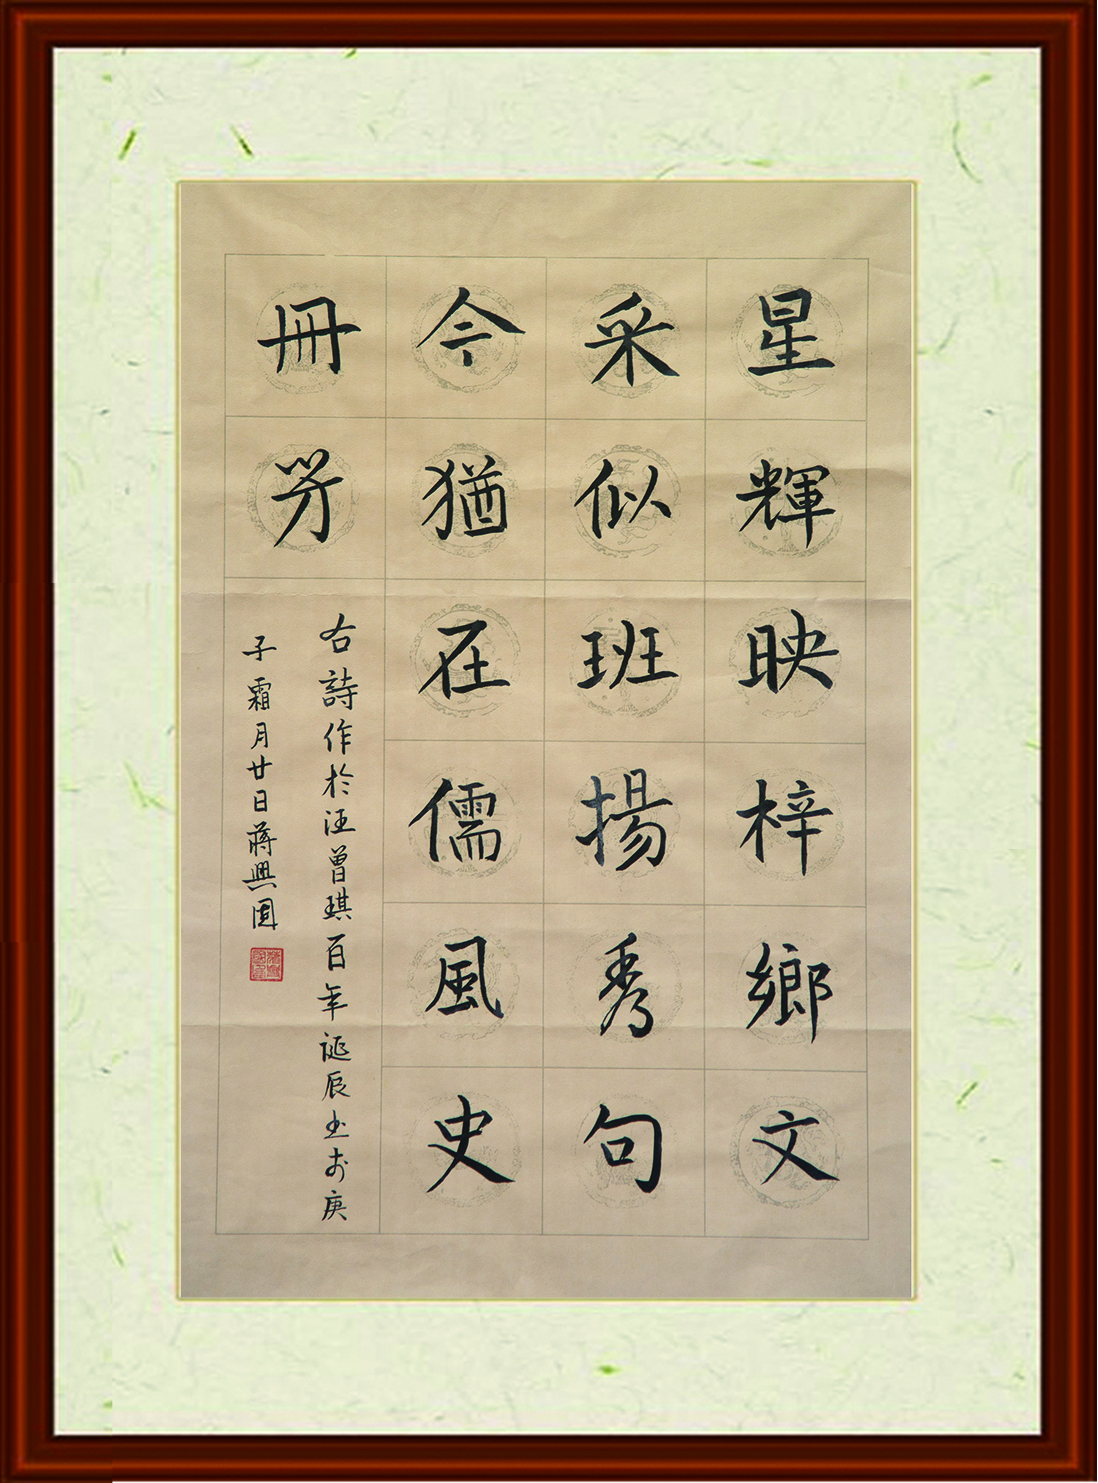 星輝映梓鄉文
采似班揚秀句
今猶在儒風史
冊芳
右詩作於汪曾琪百年誕辰书於庚
子霜月廿日蔣興國